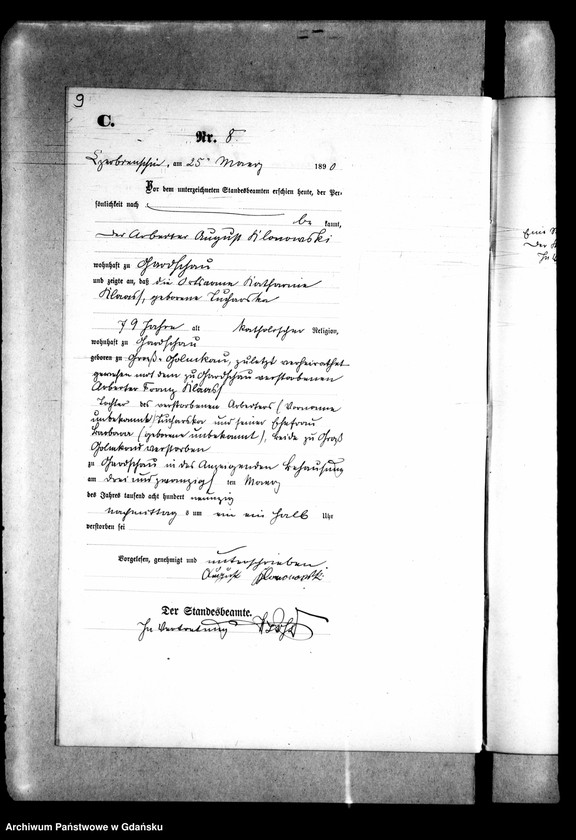 9
C.
Nr. 8
Czerbienschin, am 25ten Maerz 1890
Vor dem unterzeichneten Standesbeamten erschien heute, der Per-
sönlichkeit nach
be kannt,
der Arbeiter August Klonowski
wohnhaft zu Gardschau
und zeigte an, daß die Ortsarme Katharine
Klaass, geborene Tucharska
79 Jahre alt katholischer Religion,
wohnhaft zu Gardschau
geboren zu Groß-Golmkau, zuletzt verheirathet
gewesen mit dem zu Gardschau verstorbenen
Arbeiter Franz Klaass
Tochter des verstorbenen Arbeiters (Vorname
unbekannt) Tucharska und seiner Ehefrau
Barbara (geborene unbekannt), beide zu Groß
Golmkau verstorben
zu Gardschau in des Anzeigenden Behausung
am drei und zwanzigsten Maerz
des Jahres tausend acht hundert neunzig
nachmittag s um ein ein halb Uhr
verstorben sei
Vorgelesen, genehmigt und unterschrieben
August Klonowski
Der Standesbeamte.
In Vertretung
Archiwum Państwowe w Gdańsku